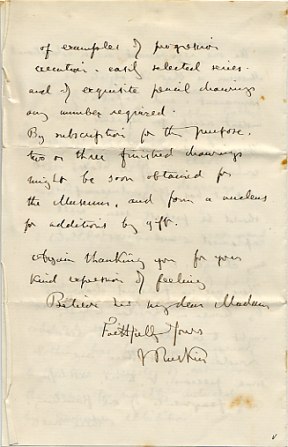 of examples of progressive
execution. easily selected series.
and of exquisite pencil drawings
any number required.
By subscription for the purpose.
two or three finished drawings
might be soon obtained for
the Museum, and form a nucleus
for additions by gift.
Again thanking you for your
kind expression of feeling
Believe me my dear Madam
Faithfully Yours
J Ruskin